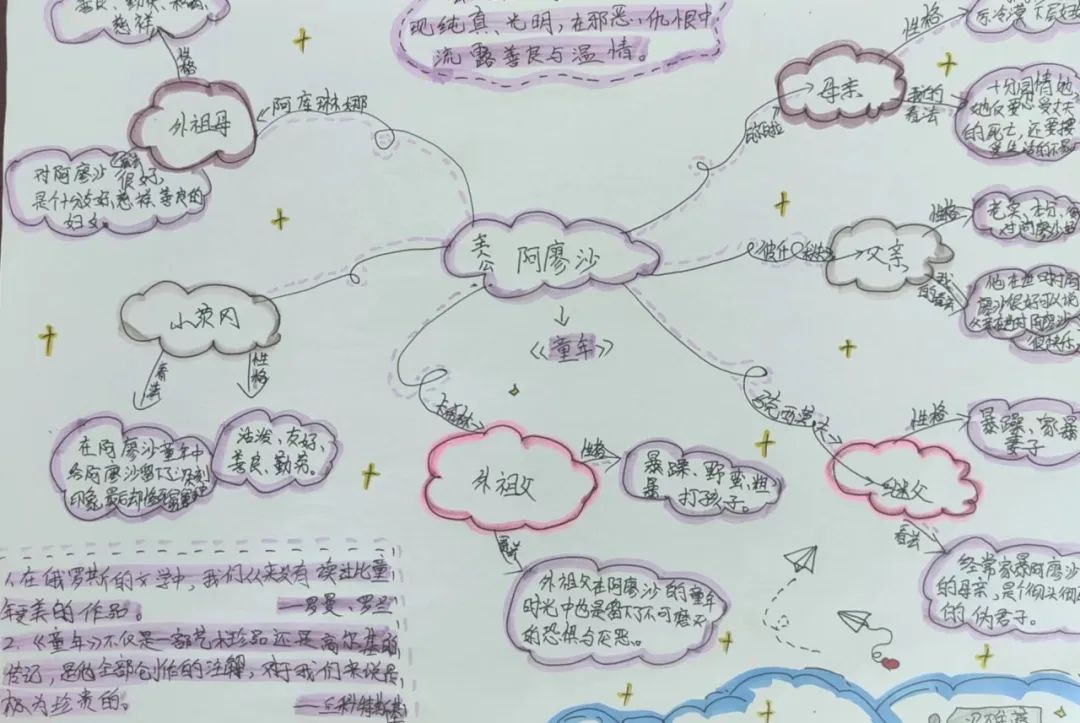 善良、勤快、
慈祥
性格
外祖母
阿库琳娜
对阿廖沙很好,
是个十分友好,慈祥善良的
妇女。
现纯真、光明,在邪恶、仇恨中
流露善良与温情。
母亲
性格
我的
看法
十分同情她
的死亡,还要
主公
阿廖沙
《童年》
父亲
性格
老实、
我
的看法
小茨冈
看法
性格
在阿廖沙童年中
给阿廖沙留下深刻
印象,最后却
活泼、友好、
善良、勤劳。
外祖父
性格
暴躁、野蛮、粗
暴、打孩子。
外祖父在阿廖沙的童年
时光中也是留下了不可磨灭
的恐惧与厌恶。
继父
性格
暴躁、家暴
妻子
看法
经常家暴阿廖沙
的母亲,是个彻头彻
的伪君子。
1、在俄罗斯的文学中,我们从来没有读过比童
年更美的作品。
——罗曼、罗兰
2、《童年》不仅是一部艺术珍品还是高尔基的
传记,是他全部创作的注释,对于我们来说是,
极为珍贵的。